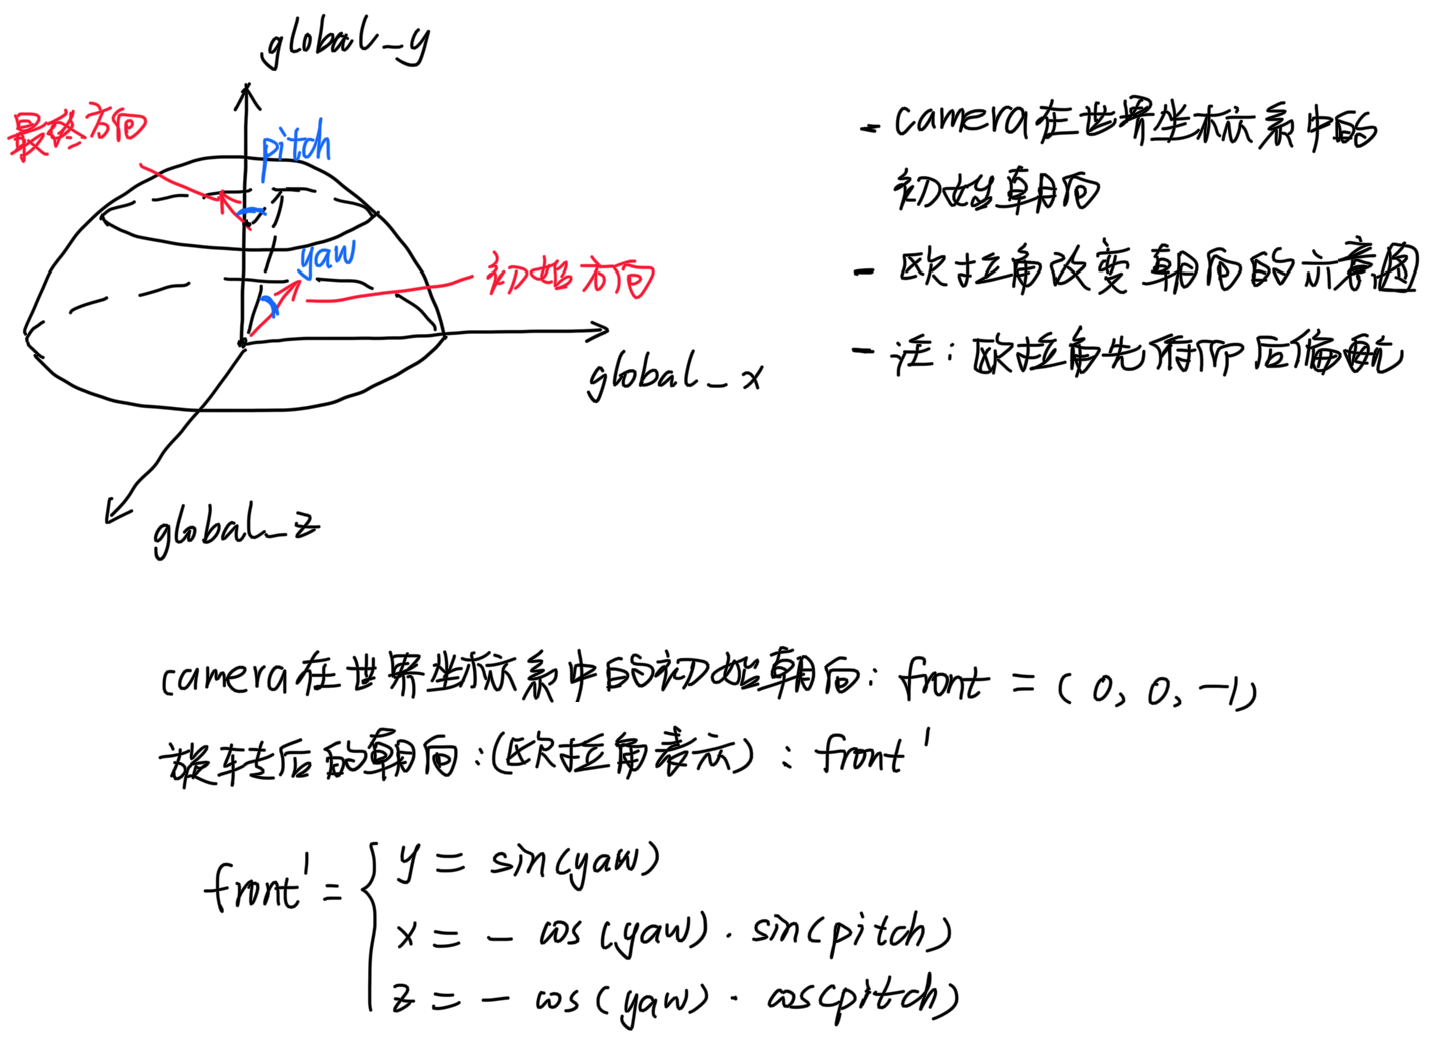 global_y
最终方向
pitch
yaw
初始方向
global_x
global_z
- camera在世界坐标系中的
初始朝向
- 欧拉角改变朝向的示意图
- 注:欧拉角先俯仰后偏航
camera在世界坐标系中的初始朝向: front = (0, 0, -1)
旋转后的朝向:(欧拉角表示): front'
front' = { y = sin(yaw)
x = - cos(yaw) · sin(pitch)
z = - cos(yaw) · cos(pitch)